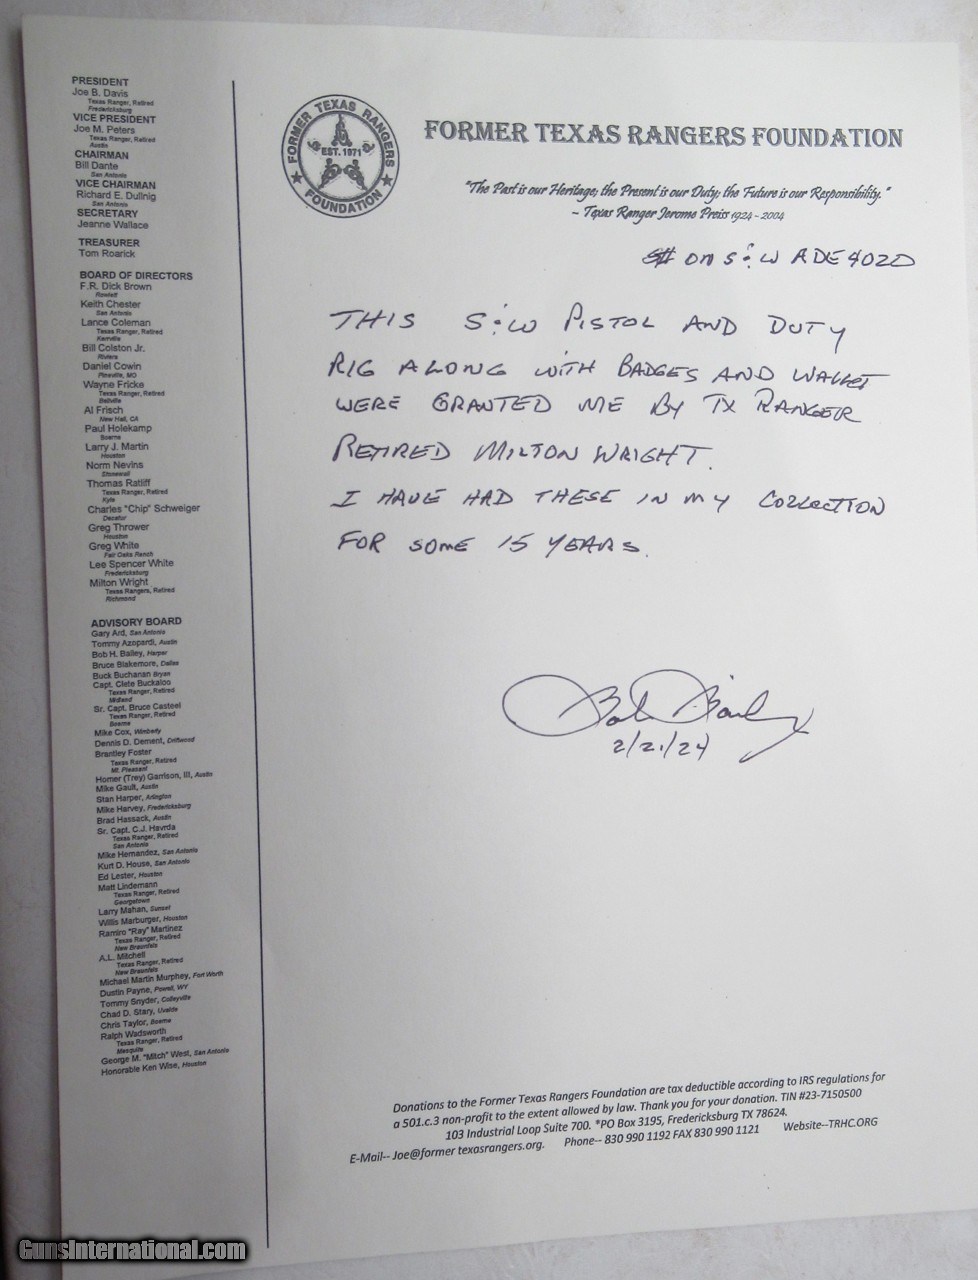 PRESIDENT
Joe B. Davis
Texas Ranger, Retired
Fredericksburg
VICE PRESIDENT
Joe M. Peters
Texas Ranger, Retired
Austin
CHAIRMAN
Bill Dante
San Antonio
VICE CHAIRMAN
Richard E. Dullnig
San Antonio
SECRETARY
Jeanne Wallace
TREASURER
Tom Roarick
BOARD OF DIRECTORS
F.R. Dick Brown
Rowlett
Keith Chester
San Antonio
Lance Coleman
Texas Ranger, Retired
Kerrville
Bill Colston Jr.
Riviera
Daniel Cowin
Pineville, MO
Wayne Fricke
Texas Ranger, Retired
Bellville
Al Frisch
New Hall, CA
Paul Holekamp
Boerne
Larry J. Martin
Houston
Norm Nevins
Stonewall
Thomas Ratliff
Texas Ranger, Retired
Kyle
Charles "Chip" Schweiger
Decatur
Greg Thrower
Houston
Greg White
Fair Oaks Ranch
Lee Spencer White
Fredericksburg
Milton Wright
Texas Rangers, Retired
Richmond
ADVISORY BOARD
Gary Ard, San Antonio
Tommy Azopardi, Austin
Bob H. Bailey, Harper
Bruce Blakemore, Dallas
Buck Buchanan Bryan
Capt. Clete Buckaloo
Texas Ranger, Retired
Midland
Sr. Capt. Bruce Casteel
Texas Ranger, Retired
Boerne
Mike Cox, Wimberly
Dennis D. Dement, Driftwood
Brantley Foster
Texas Ranger, Retired
Mt. Pleasant
Homer (Trey) Garrison, III, Austin
Mike Gault, Austin
Stan Harper, Arlington
Mike Harvey, Fredericksburg
Brad Hassack, Austin
Sr. Capt. C.J. Havrda
Texas Ranger, Retired
San Antonio
Mike Hernandez, San Antonio
Kurt D. House, San Antonio
Ed Lester, Houston
Matt Lindemann
Texas Ranger, Retired
Georgetown
Larry Mahan, Sunset
Willis Marburger, Houston
Ramiro "Ray" Martinez
Texas Ranger, Retired
New Braunfels
A.L. Mitchell
Texas Ranger, Retired
New Braunfels
Michael Martin Murphey, Fort Worth
Dustin Payne, Powell, WY
Tommy Snyder, Colleyville
Chad D. Stary, Uvalde
Chris Taylor, Boerne
Ralph Wadsworth
Texas Ranger, Retired
Mesquite
George M. "Mitch" West, San Antonio
Honorable Ken Wise, Houston
FORMER TEXAS RANGERS
EST. 1971
FOUNDATION
FORMER TEXAS RANGERS FOUNDATION
"The Past is our Heritage; the Present is our Duty; the Future is our Responsibility."
~ Texas Ranger Jerome Preiss 1924 - 2004
S# ON S&W ADE4020
THIS S&W PISTOL AND DUTY
RIG ALONG WITH BADGES AND WALLET
WERE GRANTED ME BY TX RANGER
RETIRED MILTON WRIGHT.
I HAVE HAD THESE IN MY COLLECTION
FOR SOME 15 YEARS.
Bob Bailey
2/21/24
Donations to the Former Texas Rangers Foundation are tax deductible according to IRS regulations for
a 501.c.3 non-profit to the extent allowed by law. Thank you for your donation. TIN #23-7150500
103 Industrial Loop Suite 700. *PO Box 3195, Fredericksburg TX 78624.
E-Mail-- Joe@former texasrangers.org. Phone-- 830 990 1192 FAX 830 990 1121 Website--TRHC.ORG
GunsInternational.com